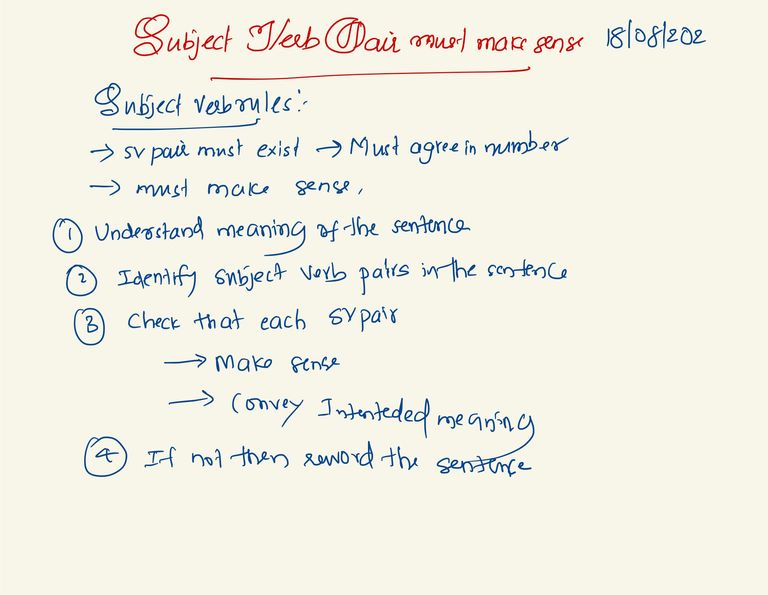 Subject Verb Pair must make sense 18/08/202
Subject verb rules:-
→ SV pair must exist → Must agree in number
→ must make sense,
1 Understand meaning of the sentence
2 Identify subject verb pairs in the sentence
3 Check that each SV pair
→ Make sense
→ Convey Intenteded meaning
4 If not then reword the sentence